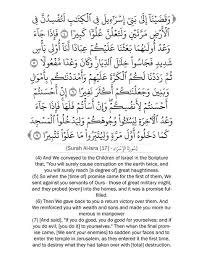 ﴿ وَقَضَيْنَآ إِلَىٰ بَنِىٓ إِسْرَٰٓءِيلَ فِى ٱلْكِتَٰبِ لَتُفْسِدُنَّ فِى
ٱلْأَرْضِ مَرَّتَيْنِ وَلَتَعْلُنَّ عُلُوًّا كَبِيرًا ٤ فَإِذَا جَآءَ
وَعْدُ أُولَىٰهُمَا بَعَثْنَا عَلَيْكُمْ عِبَادًا لَّنَآ أُو۟لِى بَأْسٍ
شَدِيدٍ فَجَاسُوا۟ خِلَٰلَ ٱلدِّيَارِ وَكَانَ وَعْدًا مَّفْعُولًا ٥
ثُمَّ رَدَدْنَا لَكُمُ ٱلْكَرَّةَ عَلَيْهِمْ وَأَمْدَدْنَٰكُم بِأَمْوَٰلٍ
وَبَنِينَ وَجَعَلْنَٰكُمْ أَكْثَرَ نَفِيرًا ٦ إِنْ
أَحْسَنتُمْ أَحْسَنتُمْ لِأَنفُسِكُمْ وَإِنْ أَسَأْتُمْ فَلَهَا فَإِذَا
جَآءَ وَعْدُ ٱلْءَاخِرَةِ لِيَسُۥٓـُٔوا۟ وُجُوهَكُمْ وَلِيَدْخُلُوا۟ ٱلْمَسْجِدَ
كَمَا دَخَلُوهُ أَوَّلَ مَرَّةٍ وَلِيُتَبِّرُوا۟ مَا عَلَوْا۟ تَتْبِيرًا ٧ ﴾
(Surah Al-Isra [17] - سورة الإسراء)
(4) And We conveyed to the Children of Israel in the Scripture
that, "You will surely cause corruption on the earth twice, and
you will surely reach [a degree of] great haughtiness.
(5) So when the [time of] promise came for the first of them, We
sent against you servants of Ours - those of great military might,
and they probed [even] into the homes, and it was a promise ful-
filled.
(6) Then We gave back to you a return victory over them. And
We reinforced you with wealth and sons and made you more nu-
merous in manpower
(7) [And said], "If you do good, you do good for yourselves; and if
you do evil, [you do it] to yourselves." Then when the final prom-
ise came, [We sent your enemies] to sadden your faces and to
enter the temple in Jerusalem, as they entered it the first time,
and to destroy what they had taken over with [total] destruction.